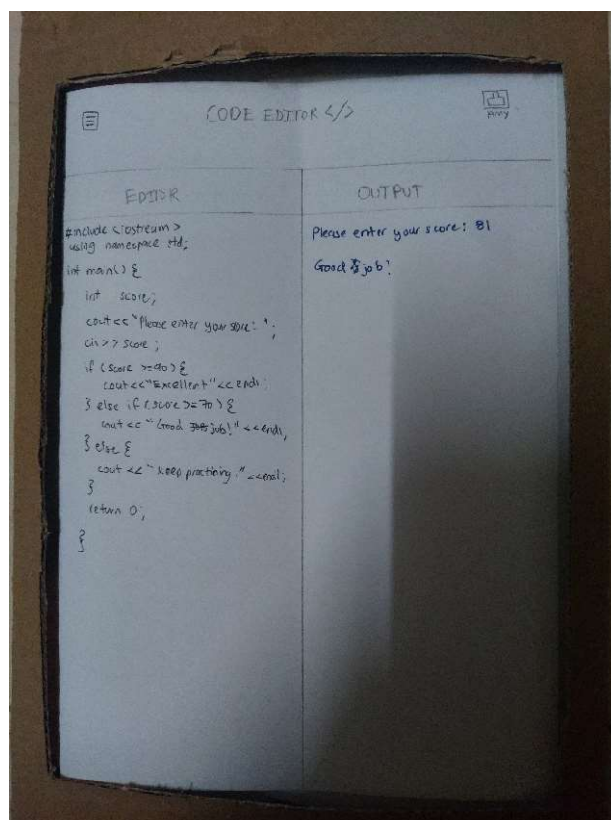 CODE EDITOR </>
EDITOR
#include <iostream>
using namespace std;
int main() {
int score;
cout << "Please enter your score: ";
cin >> score;
if (score >= 90) {
cout << "Excellent" << endl;
} else if (score >= 70) {
cout << "Good job!" << endl;
} else {
cout << "keep practicing." << endl;
}
return 0;
}
OUTPUT
Please enter your score: 81
Good job!